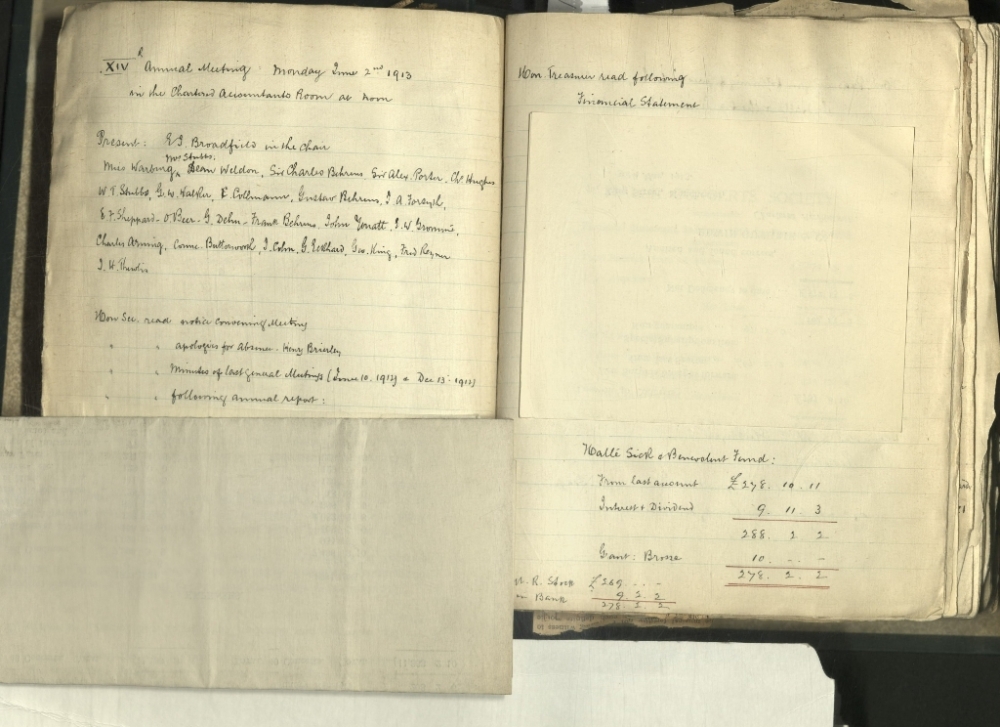 XIV Annual Meeting Monday June 2nd 1913
in the Chartered Accountants Room at noon
Present: E.J. Broadfield in the chair
Mrs Stubbs.
Miss Warburg, Dean Weldon, Sir Charles Behrens, Sir Alex Porter, Ch. Hughes
W T Stubbs, G. W. Walker, E Collmann, Gustav Behrens, J A Forsyth,
E. F. Sheppard - O Beer - G. Dehn - Frank Behrens, John
Charles Butterworth, J. Cohn, G. Eckhard, Geo. King, Fred
J. H.
Hon Sec. read notice convening Meeting
" " apologies for Absence - Henry Brierley
" " Minutes of last general Meetings (June 10. 1912) & Dec 13: 1912)
" " following annual report:
Hon. Treasurer read following
Financial Statement
Hallé Sick & Benevolent Fund:
From last account £278. 10. 11
Interest & Dividend 9. 11. 3
288. 2. 2
Grant: 10. - -
278. 2. 2
R. Stock £269. . -
Bank 9. 2. 2
278. 2. 2